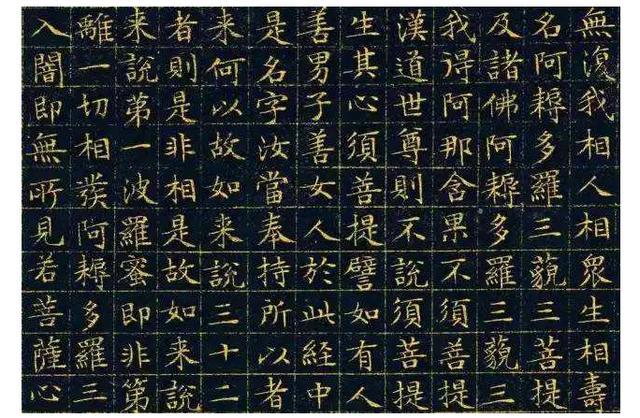 無復我相人相眾生相壽
名阿耨多羅三藐三菩提
及諸佛阿耨多羅三藐三
我得阿那含果不須善提
漢道世尊則不說須菩提
生其心須善提譬如有人
善男子善女人於此経中
是名字汝當奉持所以者
来何以故如来說三十二
者則是非相是故如来說
来說苐一波羅蜜即非第
離一切相發阿耨多羅三
入闇即無所見若菩薩心